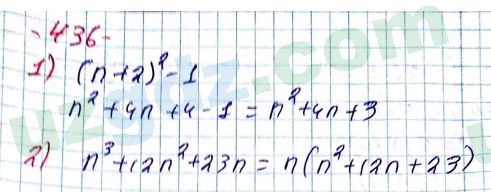 -436-
1) (n+2)²-1
n²+4n+4-1=n²+4n+3
2) n³+12n²+23n=n(n²+12n+23)